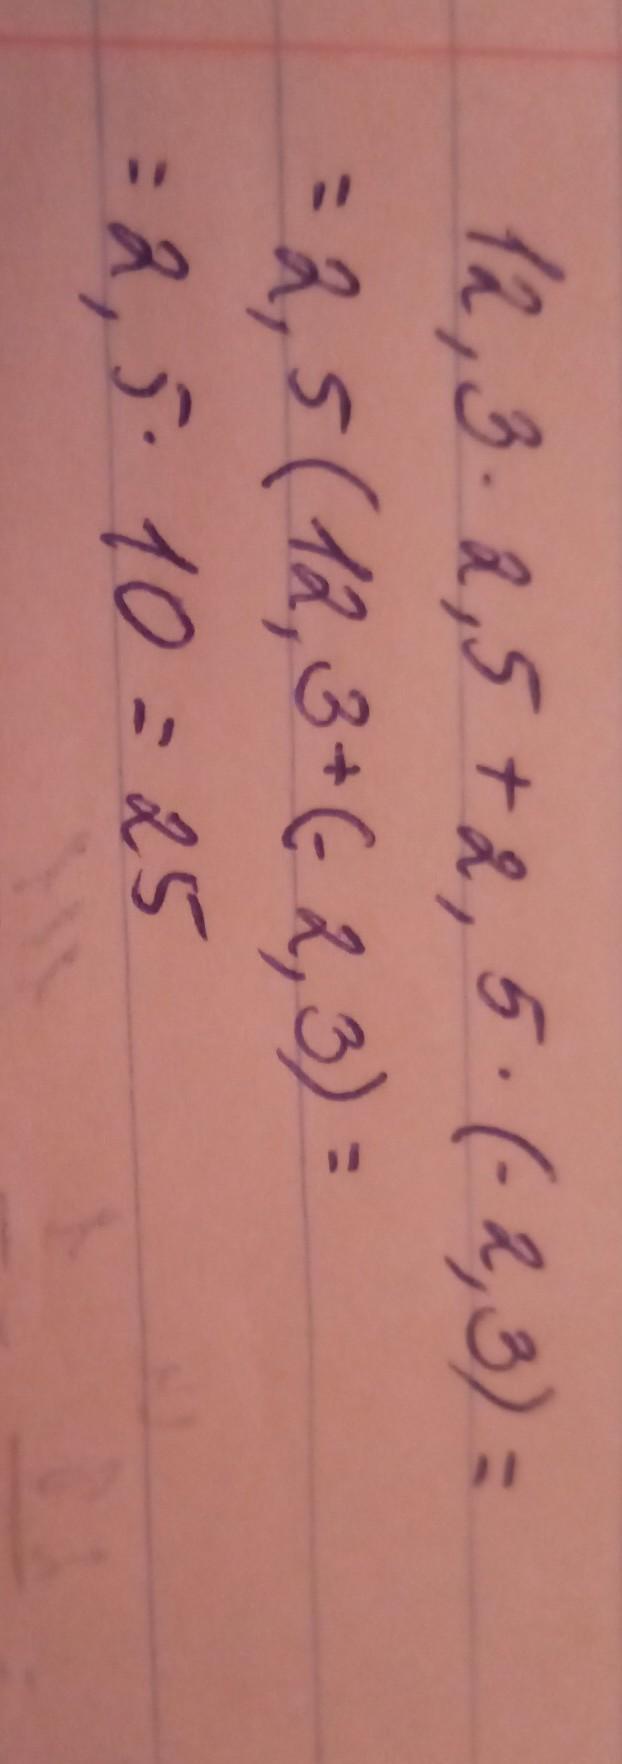 12,3·2,5+2,5·(-2,3)=
=2,5(12,3+(-2,3)=
=2,5·10=25